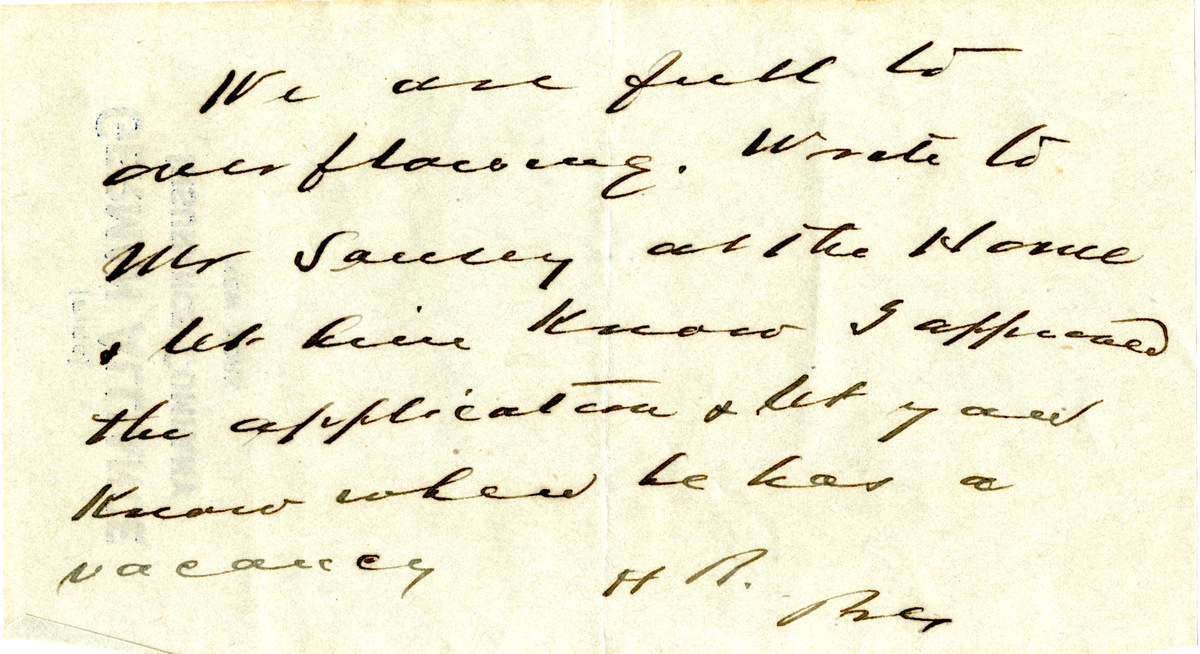 We are full to
overflowing. Write to
Mr Saussy at the Home
& let him Know I approved
the application & let you
Know when he has a
vacancy
H R.
Pres